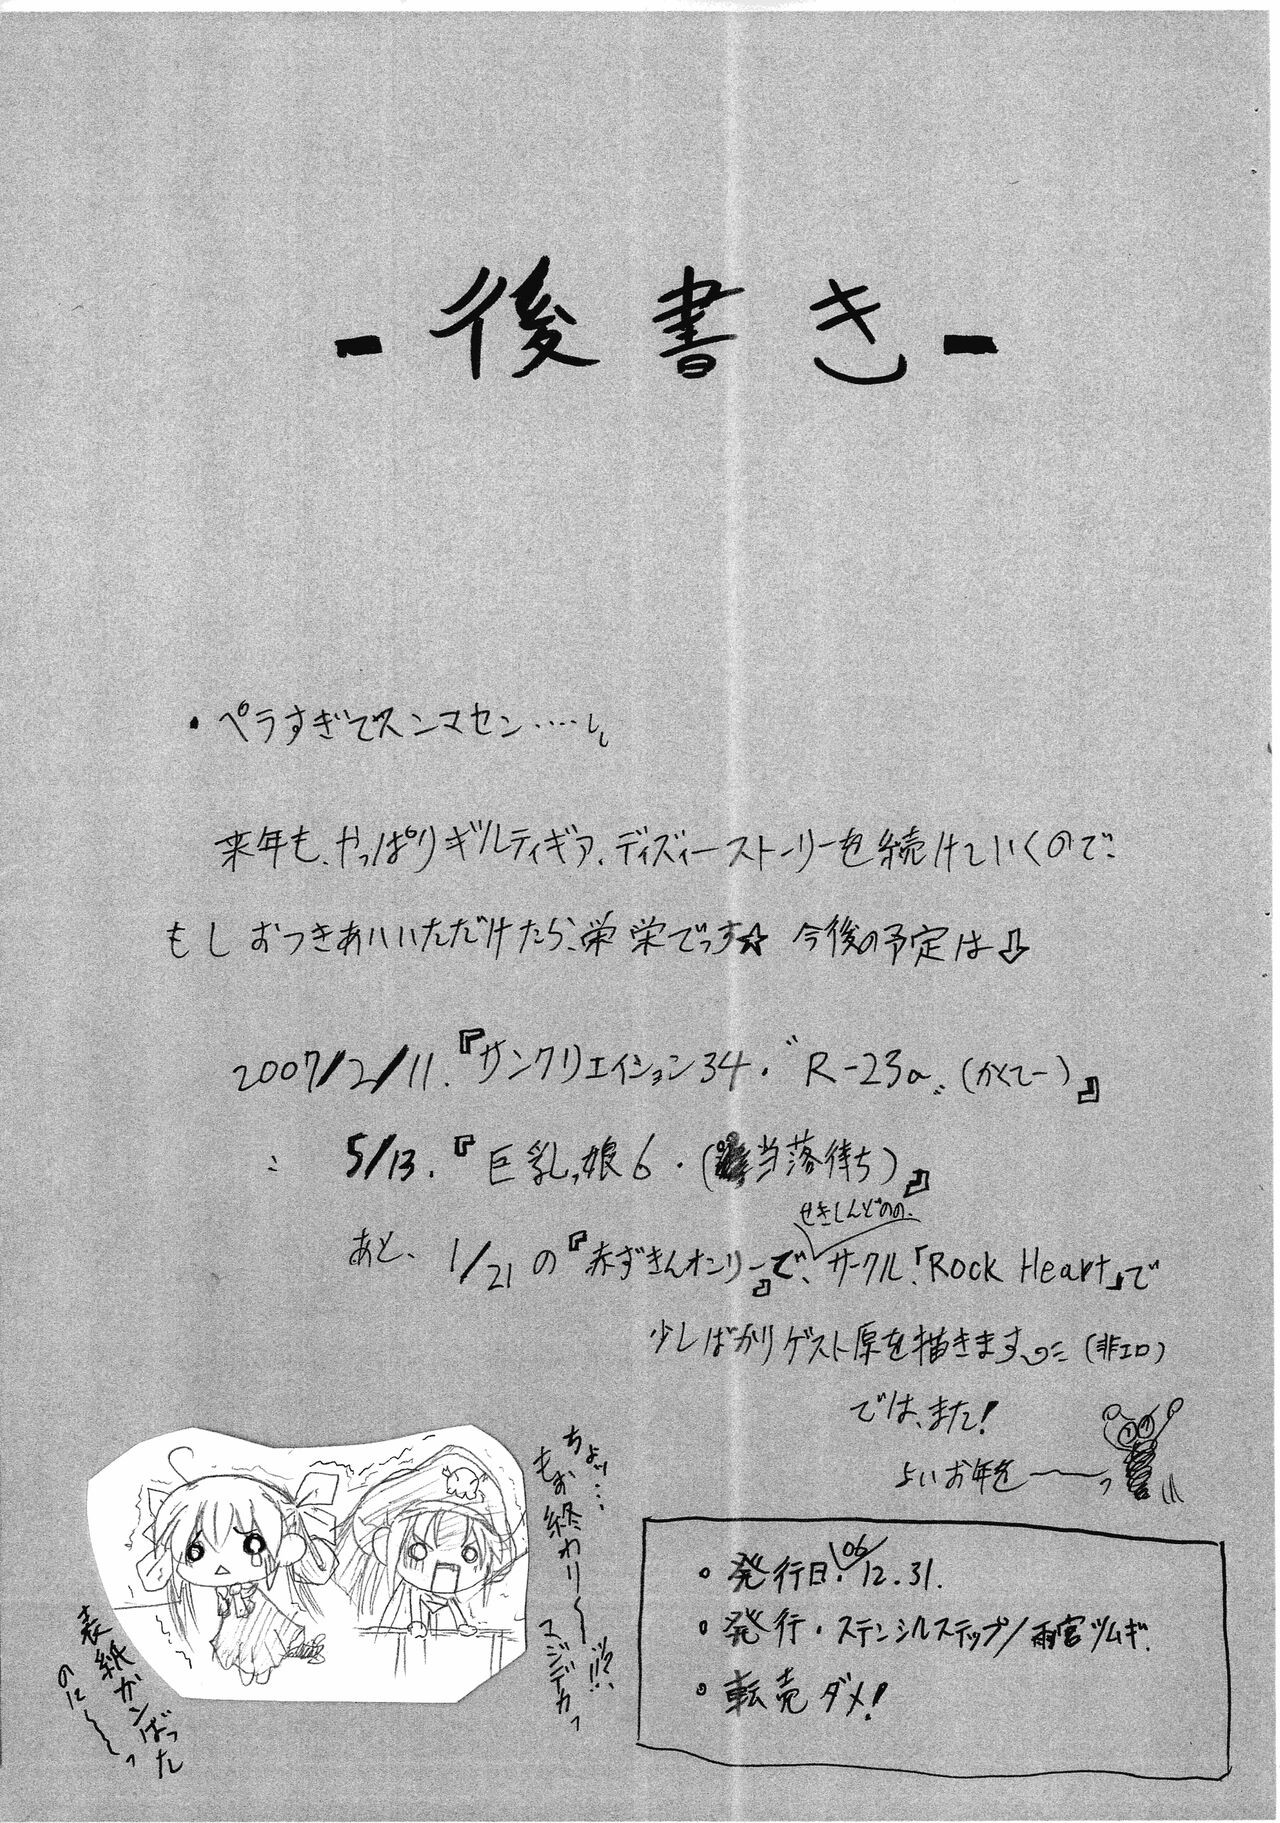 - 後書き -
・ペラすぎでスンマセン‥‥
来年も、やっぱりギルティギア、ディズィーストーリーを続けていくので、
もしおつきあいいただけたら、栄栄でっす☆ 今後の予定は⇩
2007/2/11.『サンクリエイション34・〝R-23a〟(かくてー)』
〃 5/13.『巨乳っ娘6・(当落待ち)』
せきしんどのの、
あと、1/21の『赤ずきんオンリー』で、サークル「Rock Heart」で
少しばかりゲスト原を描きます (非エロ)
では、また!
よいお年を――っ
ちょッ‥‥
もぉ終わり〜〜!!?
マジデカっ
表紙ガンばった
のに〜〜っ
・発行日.'06/12.31.
・発行・ステンシルステップ/雨宮ツムギ.
・転売ダメ!